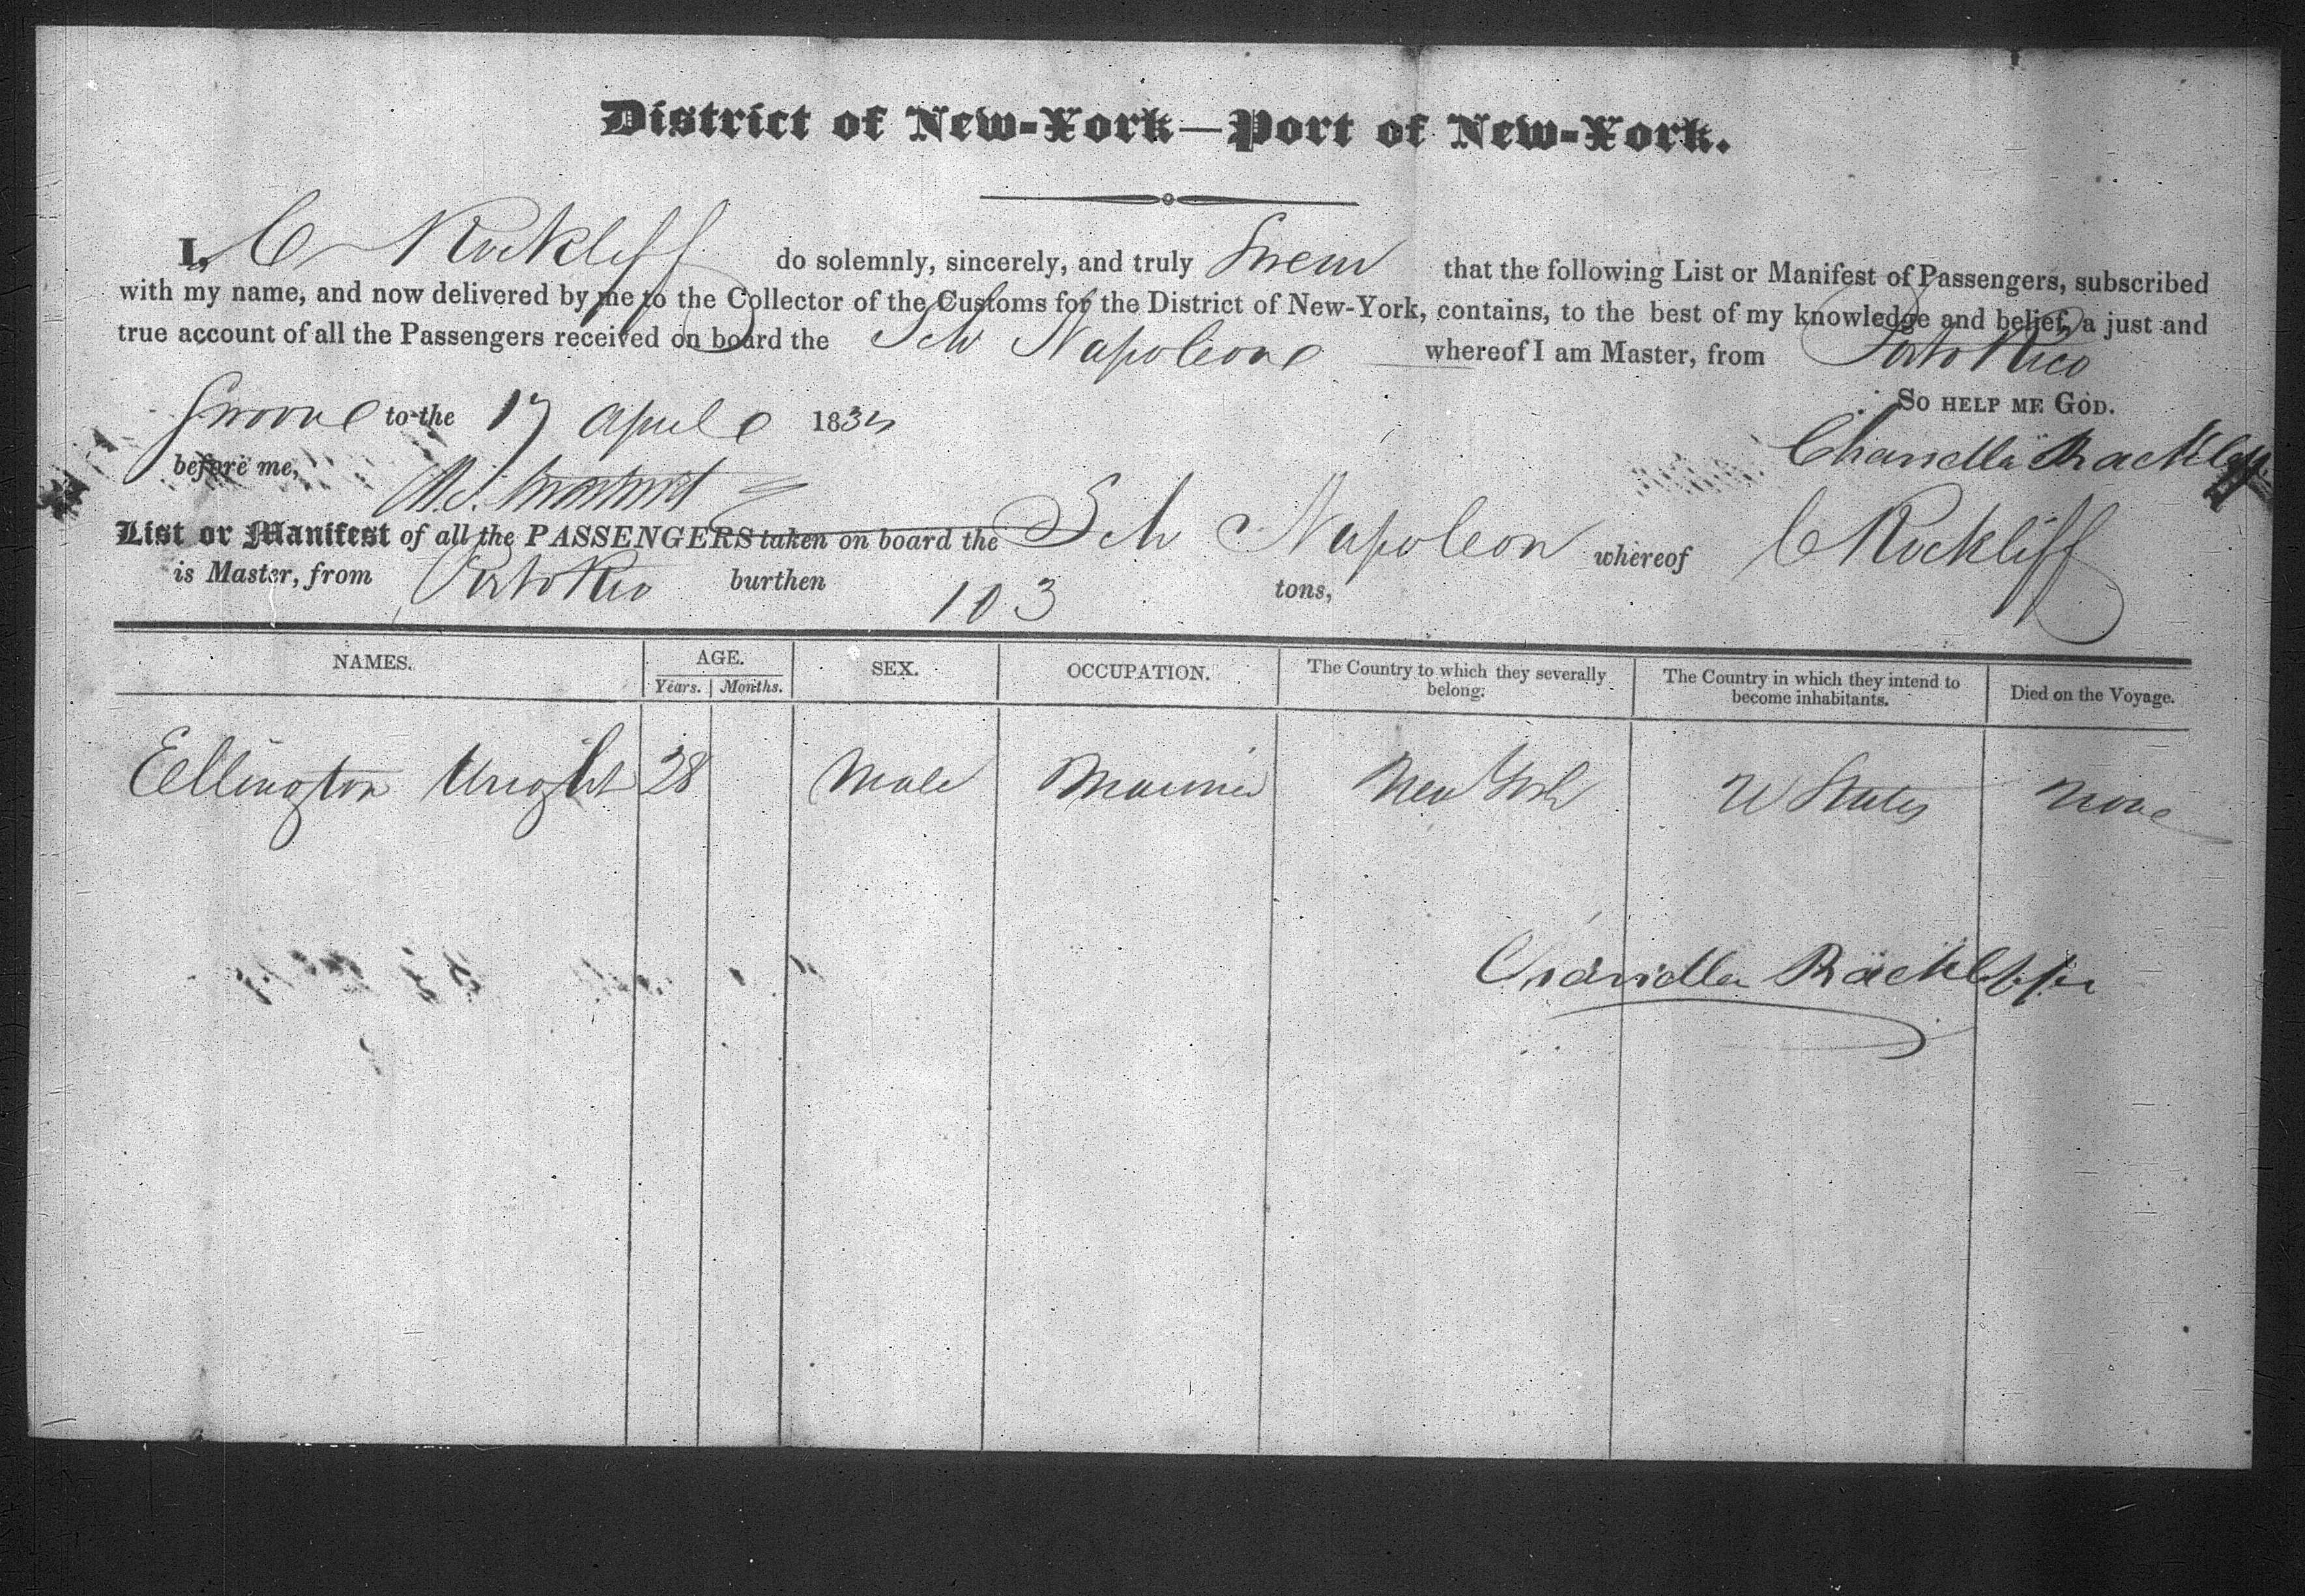 District of New-York—Port of New-York.
I, C Rockliff do solemnly, sincerely, and truly Swear that the following List or Manifest of Passengers, subscribed
with my name, and now delivered by me to the Collector of the Customs for the District of New-York, contains, to the best of my knowledge and belief, a just and
true account of all the Passengers received on board the Sch Napoleon whereof I am Master, from Porto Rico
So HELP ME GOD.
Sworne to the 17 April 1834
Chandler
before me,
List or Manifest of all the PASSENGERS taken on board the Sch Napoleon whereof C Rockliff
is Master, from Porto Rico burthen 103 tons,
NAMES. AGE. SEX. OCCUPATION. The Country to which they severally belong. The Country in which they intend to become inhabitants. Died on the Voyage.
Years. Months.
Ellington Wright 28 Male Mariner New York U States none
Chandler